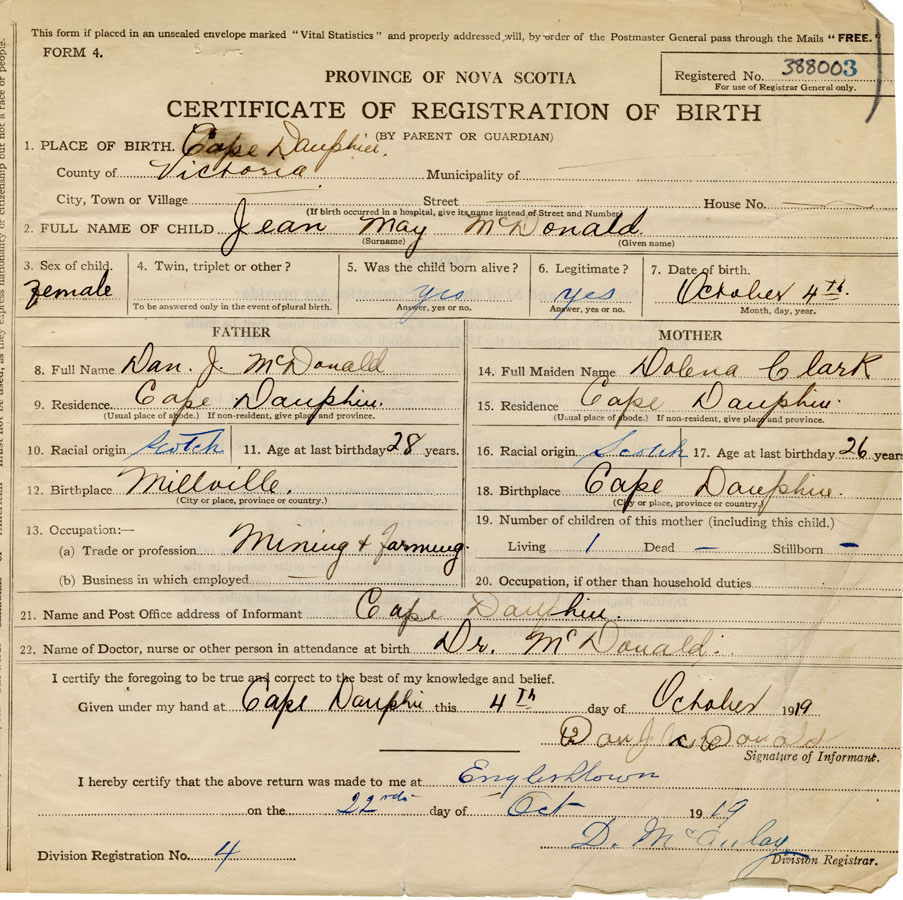 This form if placed in an unsealed envelope marked "Vital Statistics" and properly addressed will, by order of the Postmaster General pass through the Mails "FREE."
FORM 4.
Registered No. 388003
For use of Registrar General only.
PROVINCE OF NOVA SCOTIA
CERTIFICATE OF REGISTRATION OF BIRTH
(BY PARENT OR GUARDIAN)
1. PLACE OF BIRTH. Cape Dauphin.
County of Victoria Municipality of —
City, Town or Village Street — House No. —
(If birth occurred in a hospital, give its name instead of Street and Number)
2. FULL NAME OF CHILD Jean May McDonald
(Surname) (Given name)
3. Sex of child. 4. Twin, triplet or other? 5. Was the child born alive? 6. Legitimate? 7. Date of birth.
female yes yes October 4th.
To be answered only in the event of plural birth. Answer, yes or no. Answer, yes or no. Month, day, year.
FATHER
8. Full Name Dan. J. McDonald
9. Residence Cape Dauphin.
(Usual place of abode.) If non-resident, give place and province.
10. Racial origin Scotch 11. Age at last birthday 28 years.
12. Birthplace Millville.
(City or place, province or country.)
13. Occupation:—
(a) Trade or profession Mining & Farming.
(b) Business in which employed —
MOTHER
14. Full Maiden Name Dolena Clark
15. Residence Cape Dauphin.
(Usual place of abode.) If non-resident, give place and province.
16. Racial origin Scotch 17. Age at last birthday 26 years
18. Birthplace Cape Dauphin.
(City or place, province or country.)
19. Number of children of this mother (including this child.)
Living 1 Dead — Stillborn —
20. Occupation, if other than household duties
21. Name and Post Office address of Informant Cape Dauphin.
22. Name of Doctor, nurse or other person in attendance at birth Dr. McDonald.
I certify the foregoing to be true and correct to the best of my knowledge and belief.
Given under my hand at Cape Dauphin this 4th day of October 1919
Dan J McDonald
Signature of Informant.
I hereby certify that the above return was made to me at Englishtown
on the 22nd day of Oct 1919
D. McAulay
Division Registrar.
Division Registration No. 4